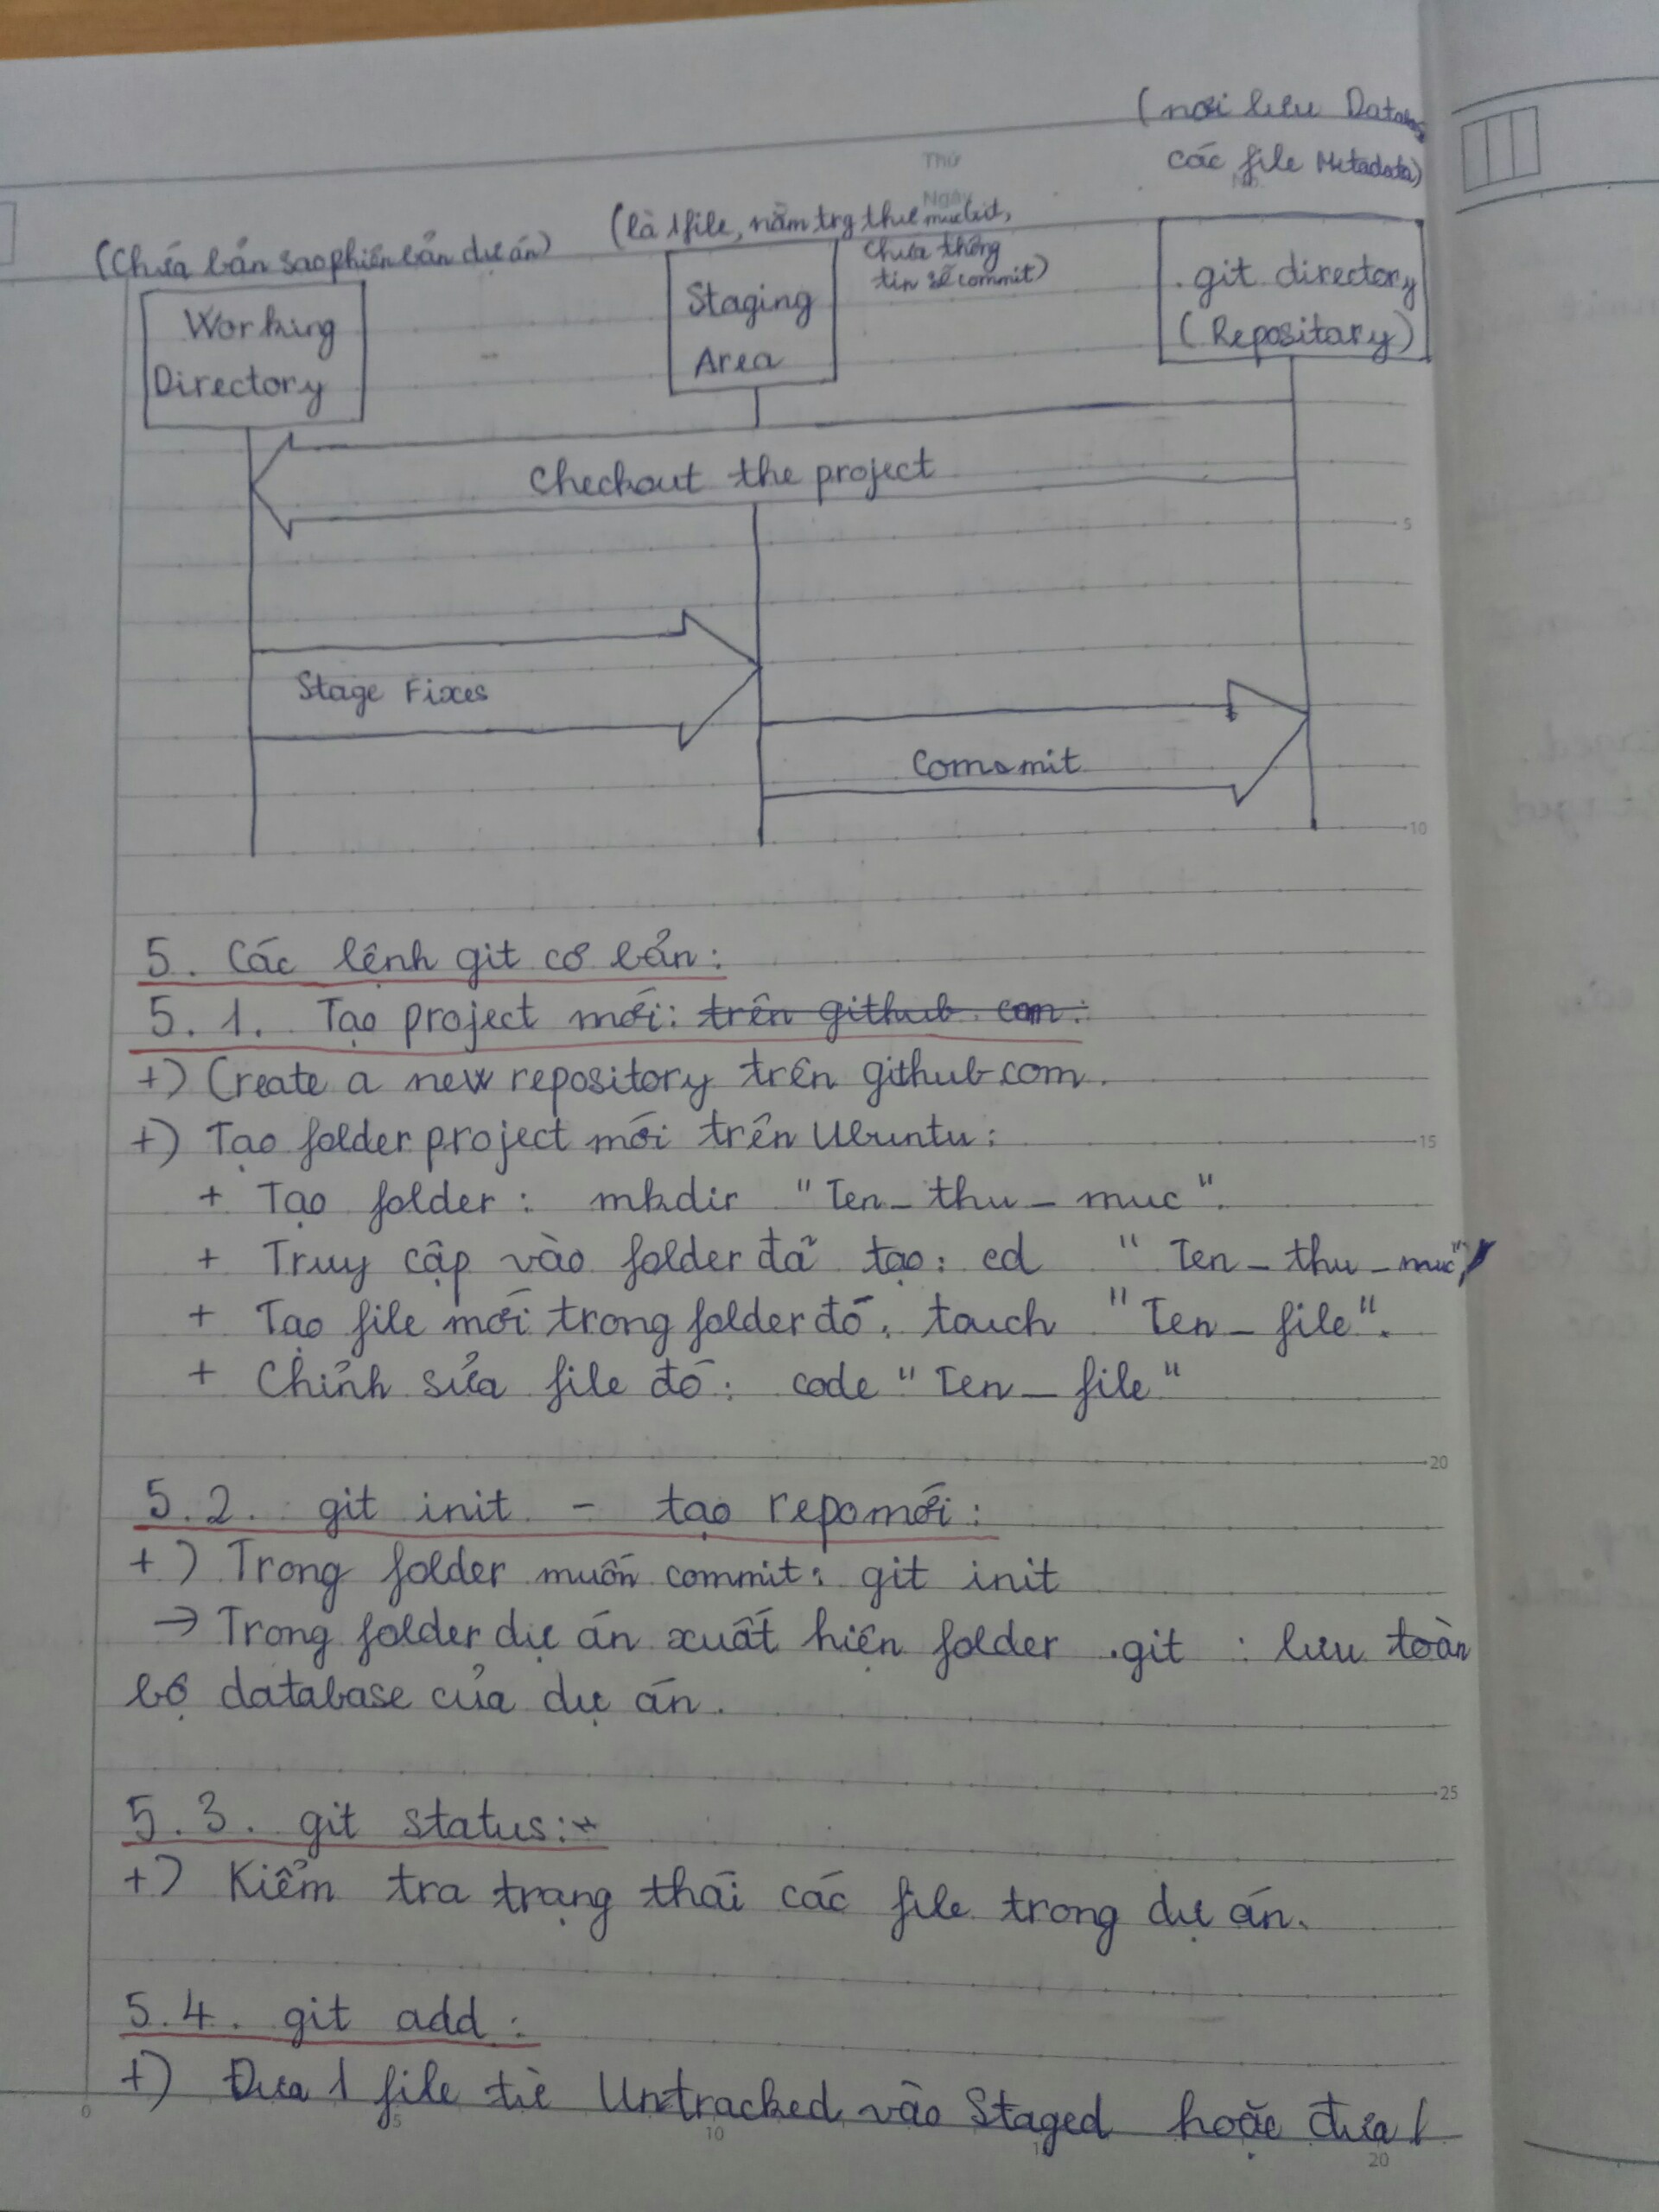 (nơi lưu Databas
các file Metadata)
Thứ
Ngày
No.
(là 1 file, nằm trg thư mục Git,
chứa thông
tin sẽ commit)
(Chứa bản sao phiên bản dự án)
Working
Directory
Staging
Area
.git directory
(Repositary)
Checkout the project
Stage Fixes
Commit
5
10
5. Các lệnh git cơ bản:
5.1. Tạo project mới: trên github.com:
+) Create a new repository trên github.com.
+) Tạo folder project mới trên Ubuntu:
15
+ Tạo folder: mkdir "Ten_thu_muc".
+ Truy cập vào folder đã tạo: cd "Ten_thu_muc"
+ Tạo file mới trong folder đó: touch "Ten_file".
+ Chỉnh sửa file đó: code "Ten_file"
20
5.2. git init - tạo repo mới:
+) Trong folder muốn commit: git init
→ Trong folder dự án xuất hiện folder .git : lưu toàn
bộ database của dự án.
25
5.3. git status:
+) Kiểm tra trạng thái các file trong dự án.
5.4. git add:
+) Đưa 1 file từ Untracked vào Staged hoặc đưa 1
0 5 10 20